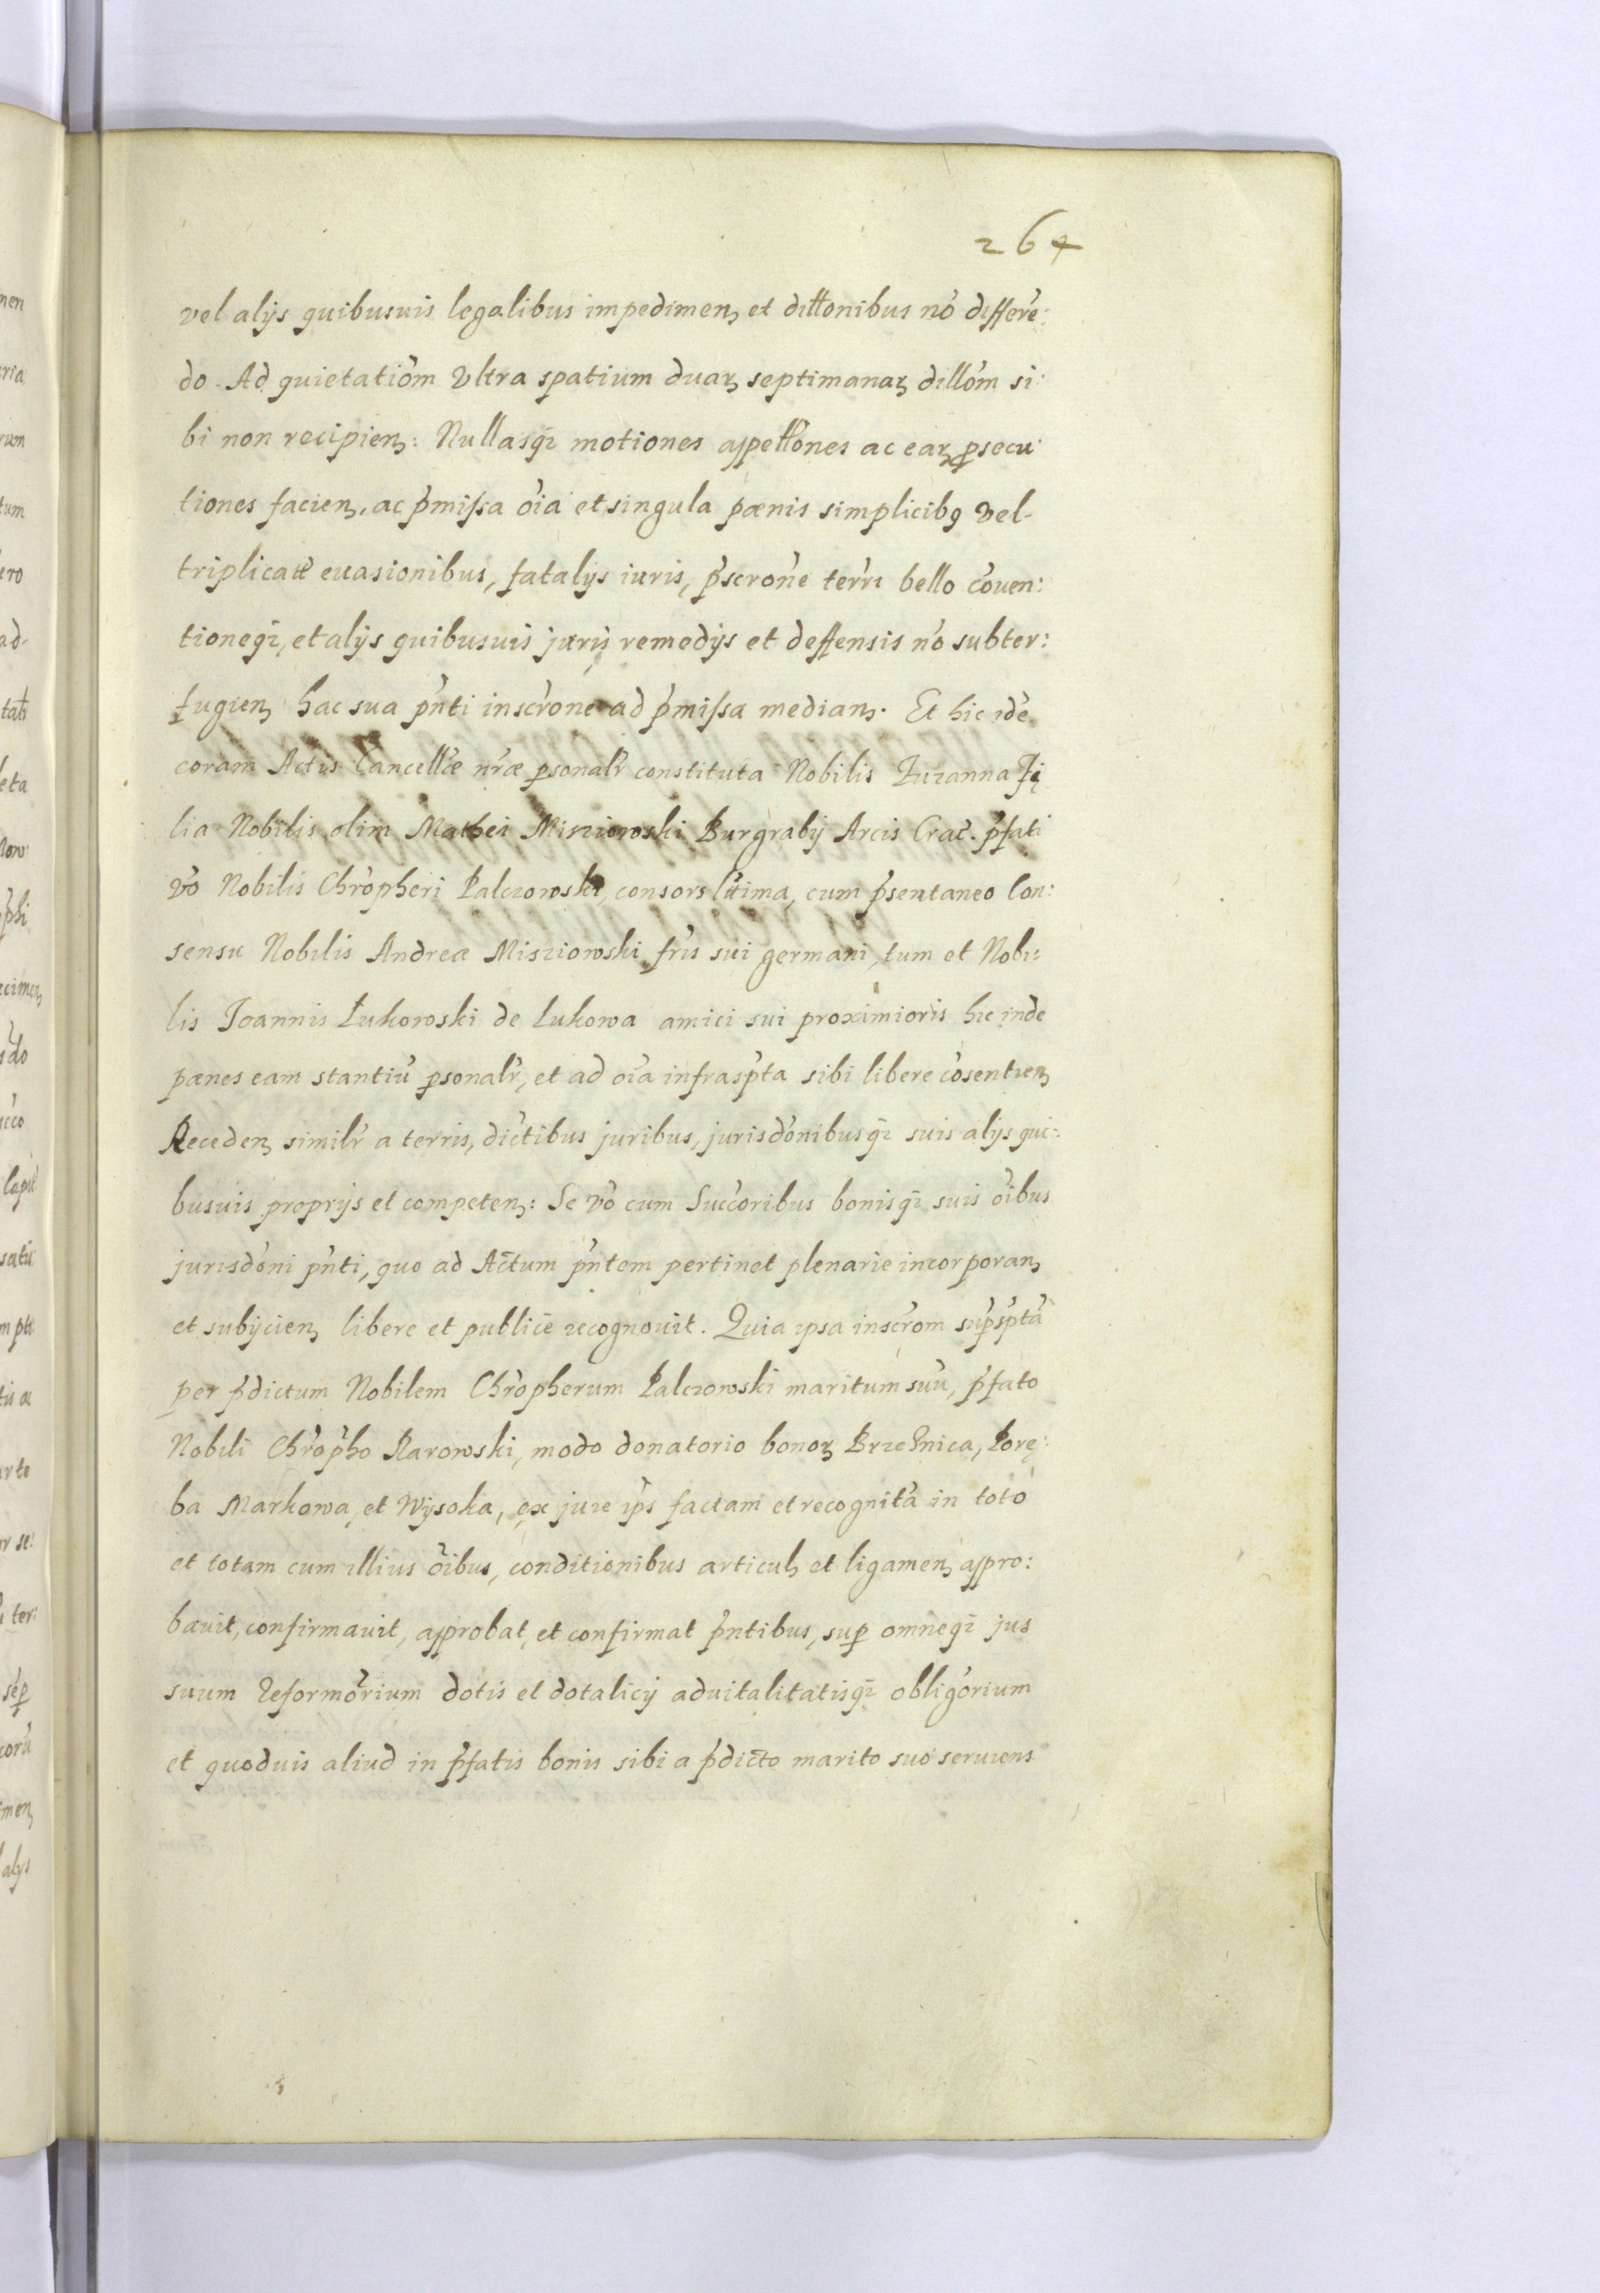 264
vel alijs quibusuis legalibus impedimenꝫ et dillonibus nō differē:
do. Ad quietatiōm Vltra spatium duaꝝ septimanaꝝ dillōm si:
bi non recipienꝫ: Nullasqꝫ motiones appellōnes ac eaꝝ ꝓsecu:
tiones facienꝫ, ac p̄missa ōia et singula pœnis simplicibꝰ vel
triplicatē euasionibus, fatalijs iuris, p̄scrōne terrī bello cōuen:
tioneqꝫ, et alijs quibusuis juris remedijs et deffensis nō subter:
fugienꝫ hac sua p̄nti inscrōne ad p̄missa medianꝫ. Et hic idē
coram Actis Cancellæ nr̄æ ꝑsonalr̄ constituta Nobilis Zuzanna Fi
lia Nobilis olim Mathei Misziowski Burgrabij Arcis Crac̄. p̄fati
vō Nobilis Chrōpheri Palczowski, consors lt̄ima, cum p̄sentaneo Con:
sensu Nobilis Andreæ Misziowski fr̄is sui germani, tum et Nobi:
lis Joannis Łukowski de Lukowa amici sui proximioris hic inde
pœnes eam stantiū ꝑsonalr̄, et ad ōia infrasp̄ta sibi libere cōsentienꝫ
Recedenꝫ similr̄ a terris, dictibus juribus, jurisdōnibusqꝫ suis alijs qui:
busuis proprijs et competenꝫ: Se vō cum Succōribus bonisqꝫ suis ōibus
jurisdōni p̄nti, quo ad Actum p̄ntem pertinet plenarie incorporanꝫ
et subijcienꝫ libere et publicē recognouit. Quia ipsa inscrōm sup̄sp̄tā
per p̄dictum Nobilem Chrōpherum Palczowski maritum suū, p̄fato
Nobili Chrōpho Rarowski, modo donatorio bonoꝝ Brzeznica, Porę:
ba Markowa, et Wysoka, ex jure ip̄s factam et recognitā in toto
et totam cum illius ōibus, conditionibus articulꝫ et ligamenꝫ appro:
bauit, confirmauit, approbat, et confirmat p̄ntibus, suꝑ omneqꝫ jus
suum reformōrium dotis et dotalicij aduitalitatisqꝫ obligōrium
et quoduis aliud in p̄fatis bonis sibi a p̄dicto marito suo seruiens